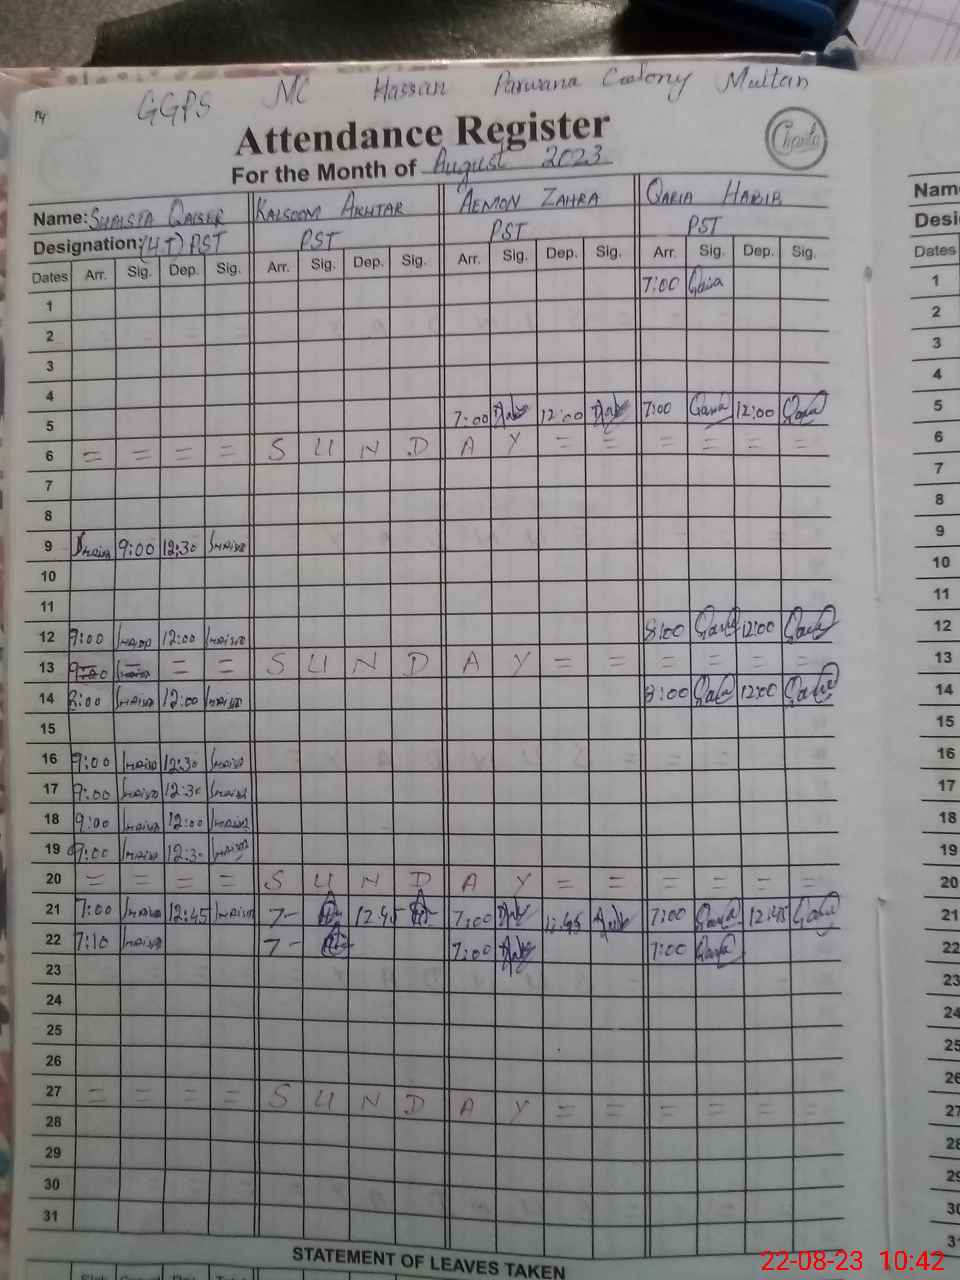 14
GGPS MC Hassan Parwana Coolony Multan
Attendance Register
Chanta
For the Month of August 2023
Name: SHAISTA QAISER KALSOOM AKHTAR AEMON ZAHRA QARIA HABIB
Designation: (H.T) PST PST PST PST
Dates Arr. Sig. Dep. Sig. Arr. Sig. Dep. Sig. Arr. Sig. Dep. Sig. Arr. Sig. Dep. Sig.
1 7:00
2
3
4
5 7:00 12:00 7:00 12:00
6 = = = = S U N D A Y = = = = = =
7
8
9 9:00 12:30
10
11
12 9:00 12:00 8:00 12:00
13 = = S U N D A Y = = = = = =
14 8:00 12:00 8:00 12:00
15
16 9:00 12:30
17 9:00 12:30
18 9:00 12:00
19 9:00 12:30
20 = = = = S U N D A Y = = = = = =
21 7:00 12:45 7- 12 45 7:00 7:00 12:45
22 7:10 7- 7:00 7:00
23
24
25
26
27 = = = = S U N D A Y = = = = = =
28
29
30
31
STATEMENT OF LEAVES TAKEN
Name
Desi
Dates
1
2
3
4
5
6
7
8
9
10
11
12
13
14
15
16
17
18
19
20
21
22
23
24
25
26
27
28
29
30
22-08-23 10:42